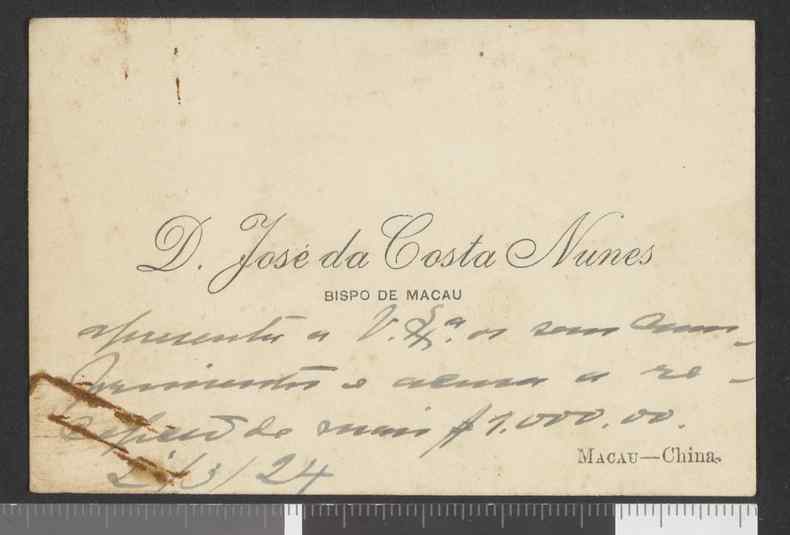 D. José da Costa Nunes
BISPO DE MACAU
apresenta a V. Exª. os seus cum-
primentos e acusa a re-
cepção de mais $1.000.00.
Macau—China.
/3/24